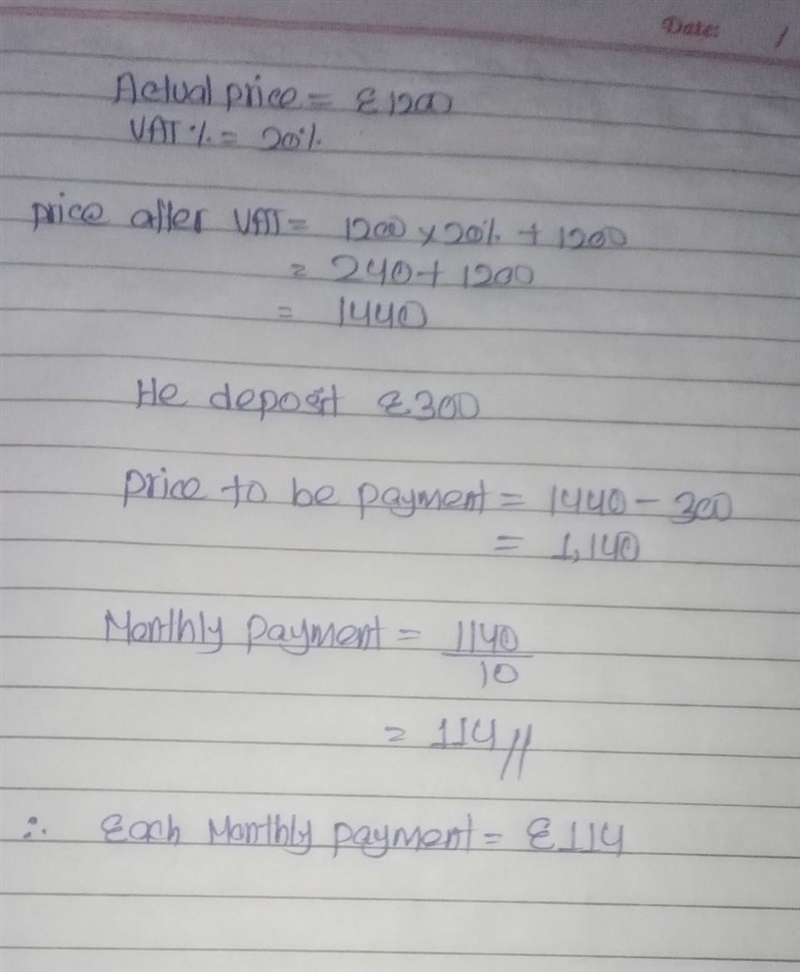 Date: /
Actual price = £1200
VAT % = 20%
price after VAT = 1200 × 20% + 1200
= 240 + 1200
= 1440
He deposit £300
price to be payment = 1440 - 300
= 1,140
Monthly payment = 1140/10
= 114 //
∴ Each Monthly payment = £114